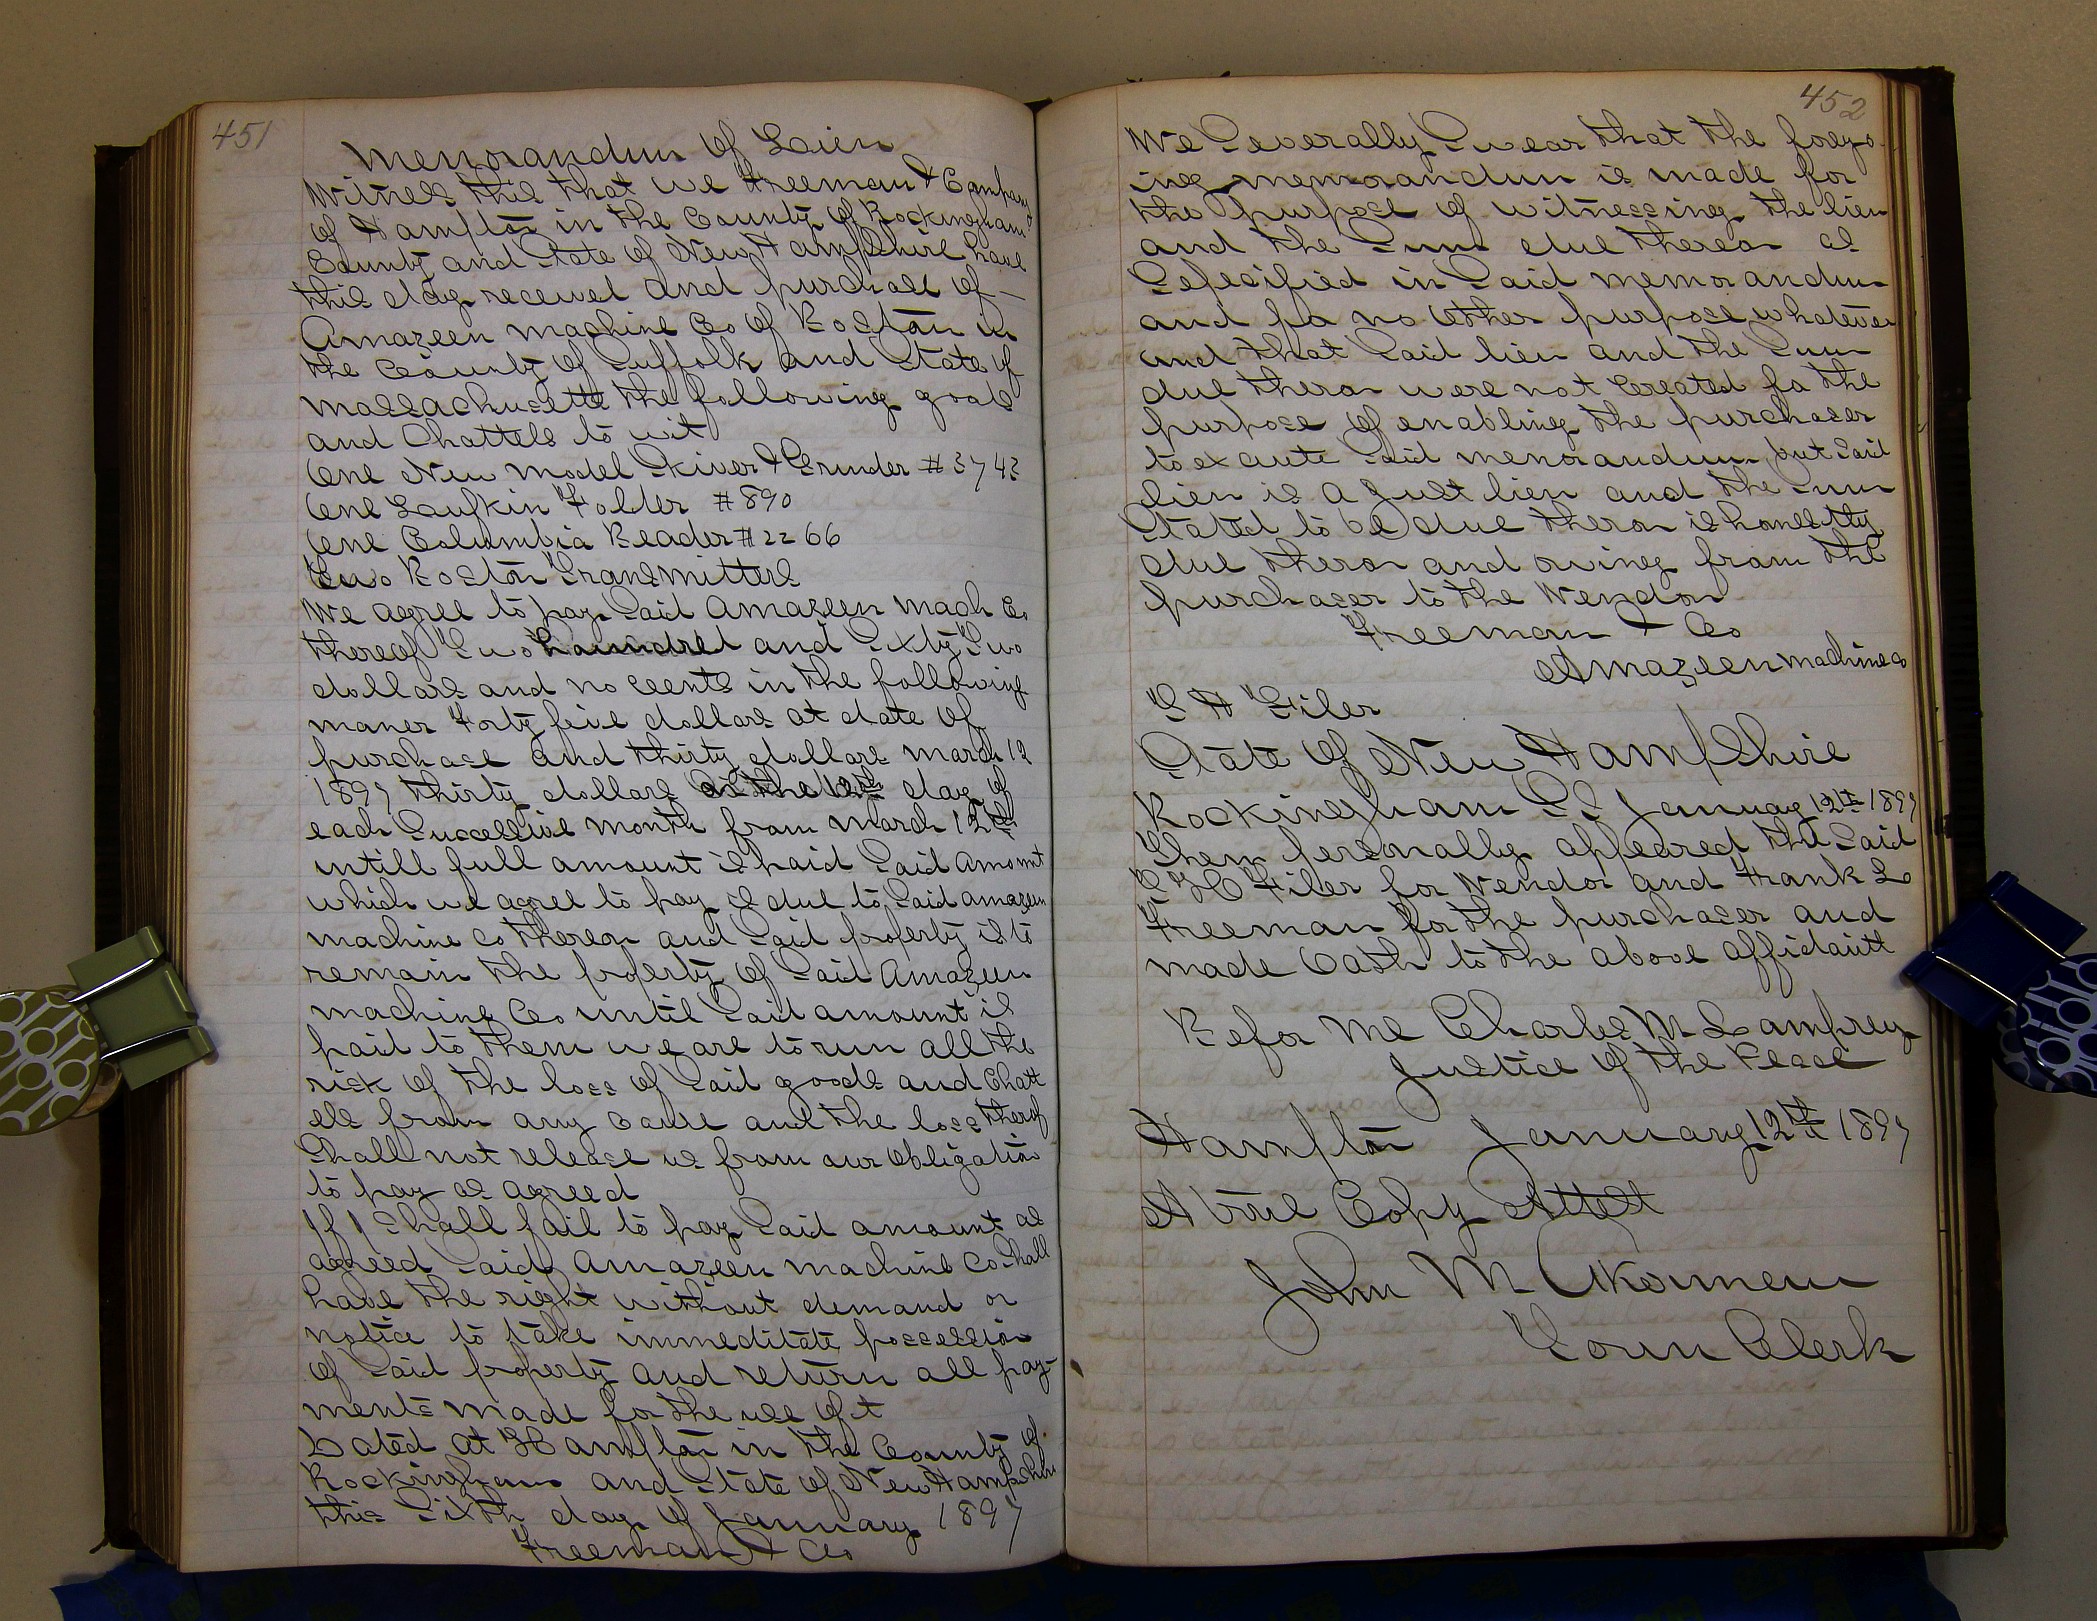 451
Memorandum of Lien
Witness this that we Freeman & Company
of Hampton in the County of Rockingham
County and State of New Hampshire have
this day received and purchased of —
Amazeen Machine Co of Boston in
the County of Suffolk and State of
Massachusetts the following goods
and Chattels to wit
One New Model Skiver & Grinder # 3743
One Laufkin Folder # 890
One Columbia Beader # 2266
Two Boston Transmitters
We agree to pay Said Amazeen Mach Co
thereof Two hundred and Sixty Two
dollars and no Cents in the following
maner Forty five dollars at date of
purchase and thirty dollars March 12
1897 thirty dollars on the 12th day of
each Successive month from March 12th
untill full amount is paid Said amount
which we agree to pay is due to Said Amazeen
machine Co thereon and Said property is to
remain the property of Said Amazeen
machine Co until Said amount is
paid to them we are to run all the
risk of the loss of Said goods and Chatt
els from any cause and the loss therof
Shall not release us from our obligation
to pay as agreed
If I shall fail to pay Said amount as
agreed Said Amazeen machine Co Shall
have the right without demand or
notice to take immeditate possession
of Said property and return all pay-
ments made for the use of it
Dated at Hampton in the County of
Rockingham and State of New Hampshire
this Sixth day of January 1897
Freeman & Co
452
We Severally Swear that the forego-
ing memorandum is made for
the purpose of witnessing the lien
and the Sum due thereon as
Specified in Said memorandum
and for no other purpose whatever
and that Said lien and the Sum
due theron were not Created for the
purpose of enabling the purchaser
to excute Said memorandum but Said
lien is a Just lien and the Sum
Stated to be due theron is honesttly
due theron and owing from the
purchaser to the Vendor
Freeman & Co
Amazeen Machine Co
E H Filer
State of New Hampshire
Rockingham SS January 12th 1897
Then personally appeared the Said
E H Filer for Vendor and Frank L
Freeman for the purchaser and
made Oath to the above affidavitt
Before Me Charles M Lamprey
Justice of the Peace
Hampton January 12th 1897
A True Copy Attest
John M Akerman
Town Clerk